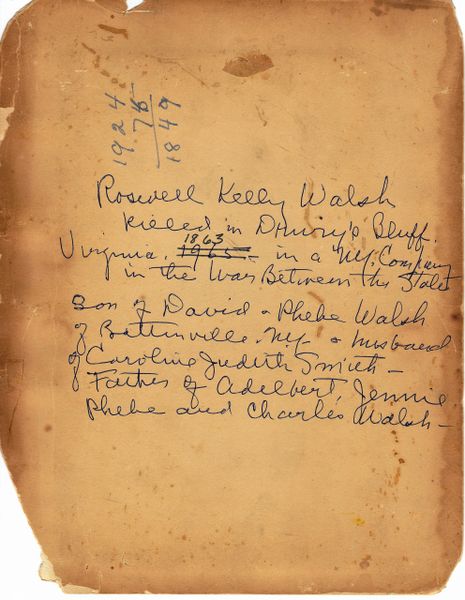 1924
75
1849
Roswell Kelly Walsh
Killed in Bluff.
1863
Virginia, 1965 - in a "NY. Company
in the War Between the States
Son of David & Phebe Walsh
of Battenville, NY & husband
of Caroline Judith Smith -
Father of Adelbert, Jennie
Phebe and Charles Walsh -